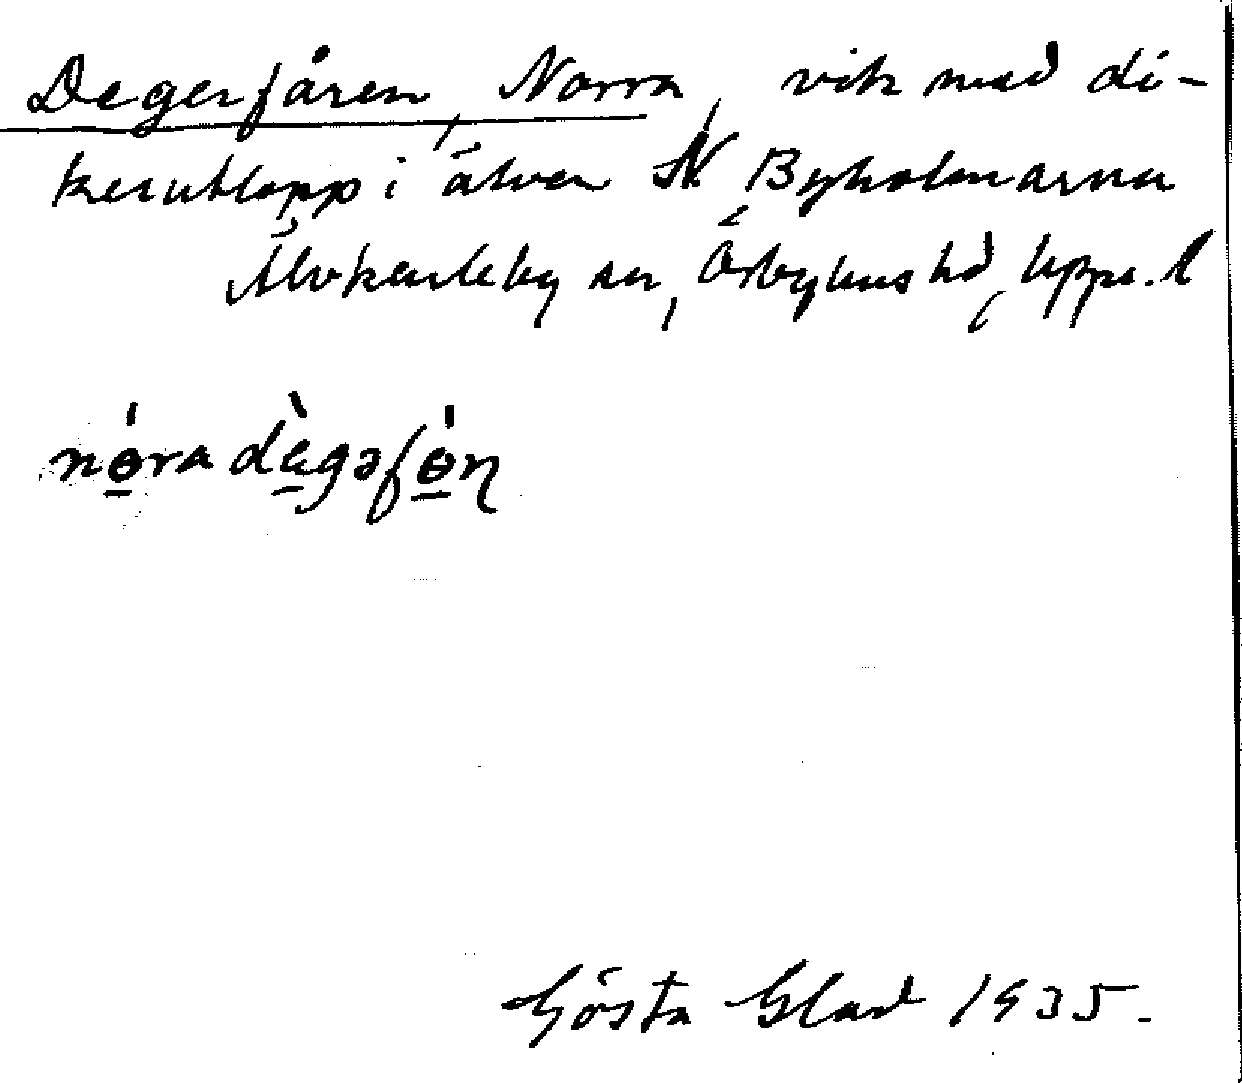 Degerfåren, Norra, vik med di-
kesutlopp i älven N. Byholmarna
Älvkarleby sn, Örbyhus hd, Upps. l
nɵ́ra dæ̀gəfɵ́ɳ
Gösta Glad 1935.